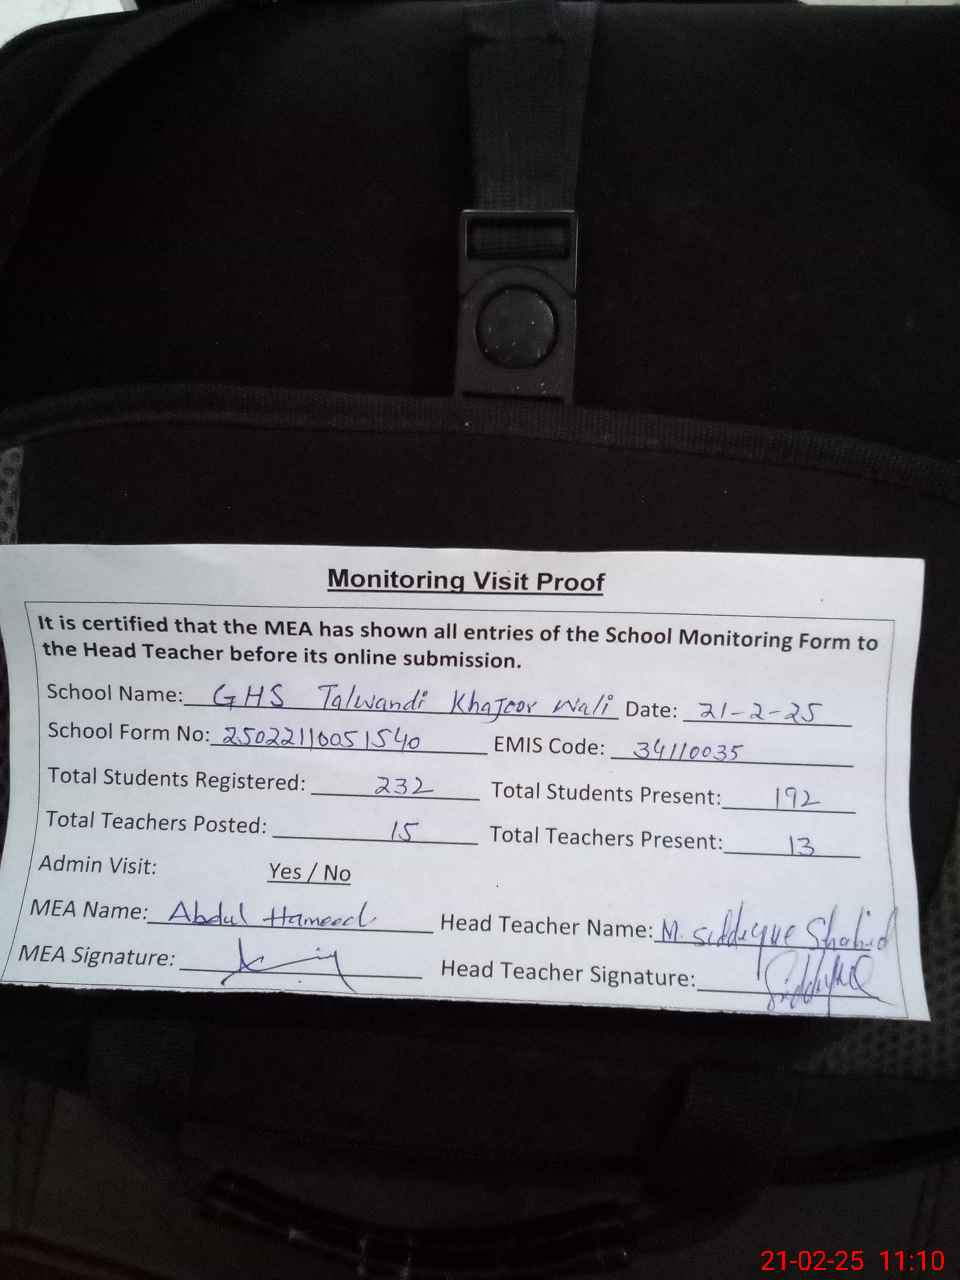 Monitoring Visit Proof
It is certified that the MEA has shown all entries of the School Monitoring Form to
the Head Teacher before its online submission.
School Name: GHS Talwandi Khajoor Wali Date: 21-2-25
School Form No: 25022110051540 EMIS Code: 34110035
Total Students Registered: 232 Total Students Present: 192
Total Teachers Posted: 15 Total Teachers Present: 13
Admin Visit: Yes / No
MEA Name: Abdul Hameed Head Teacher Name: M. Siddeyue Shahid
MEA Signature: Head Teacher Signature:
21-02-25 11:10